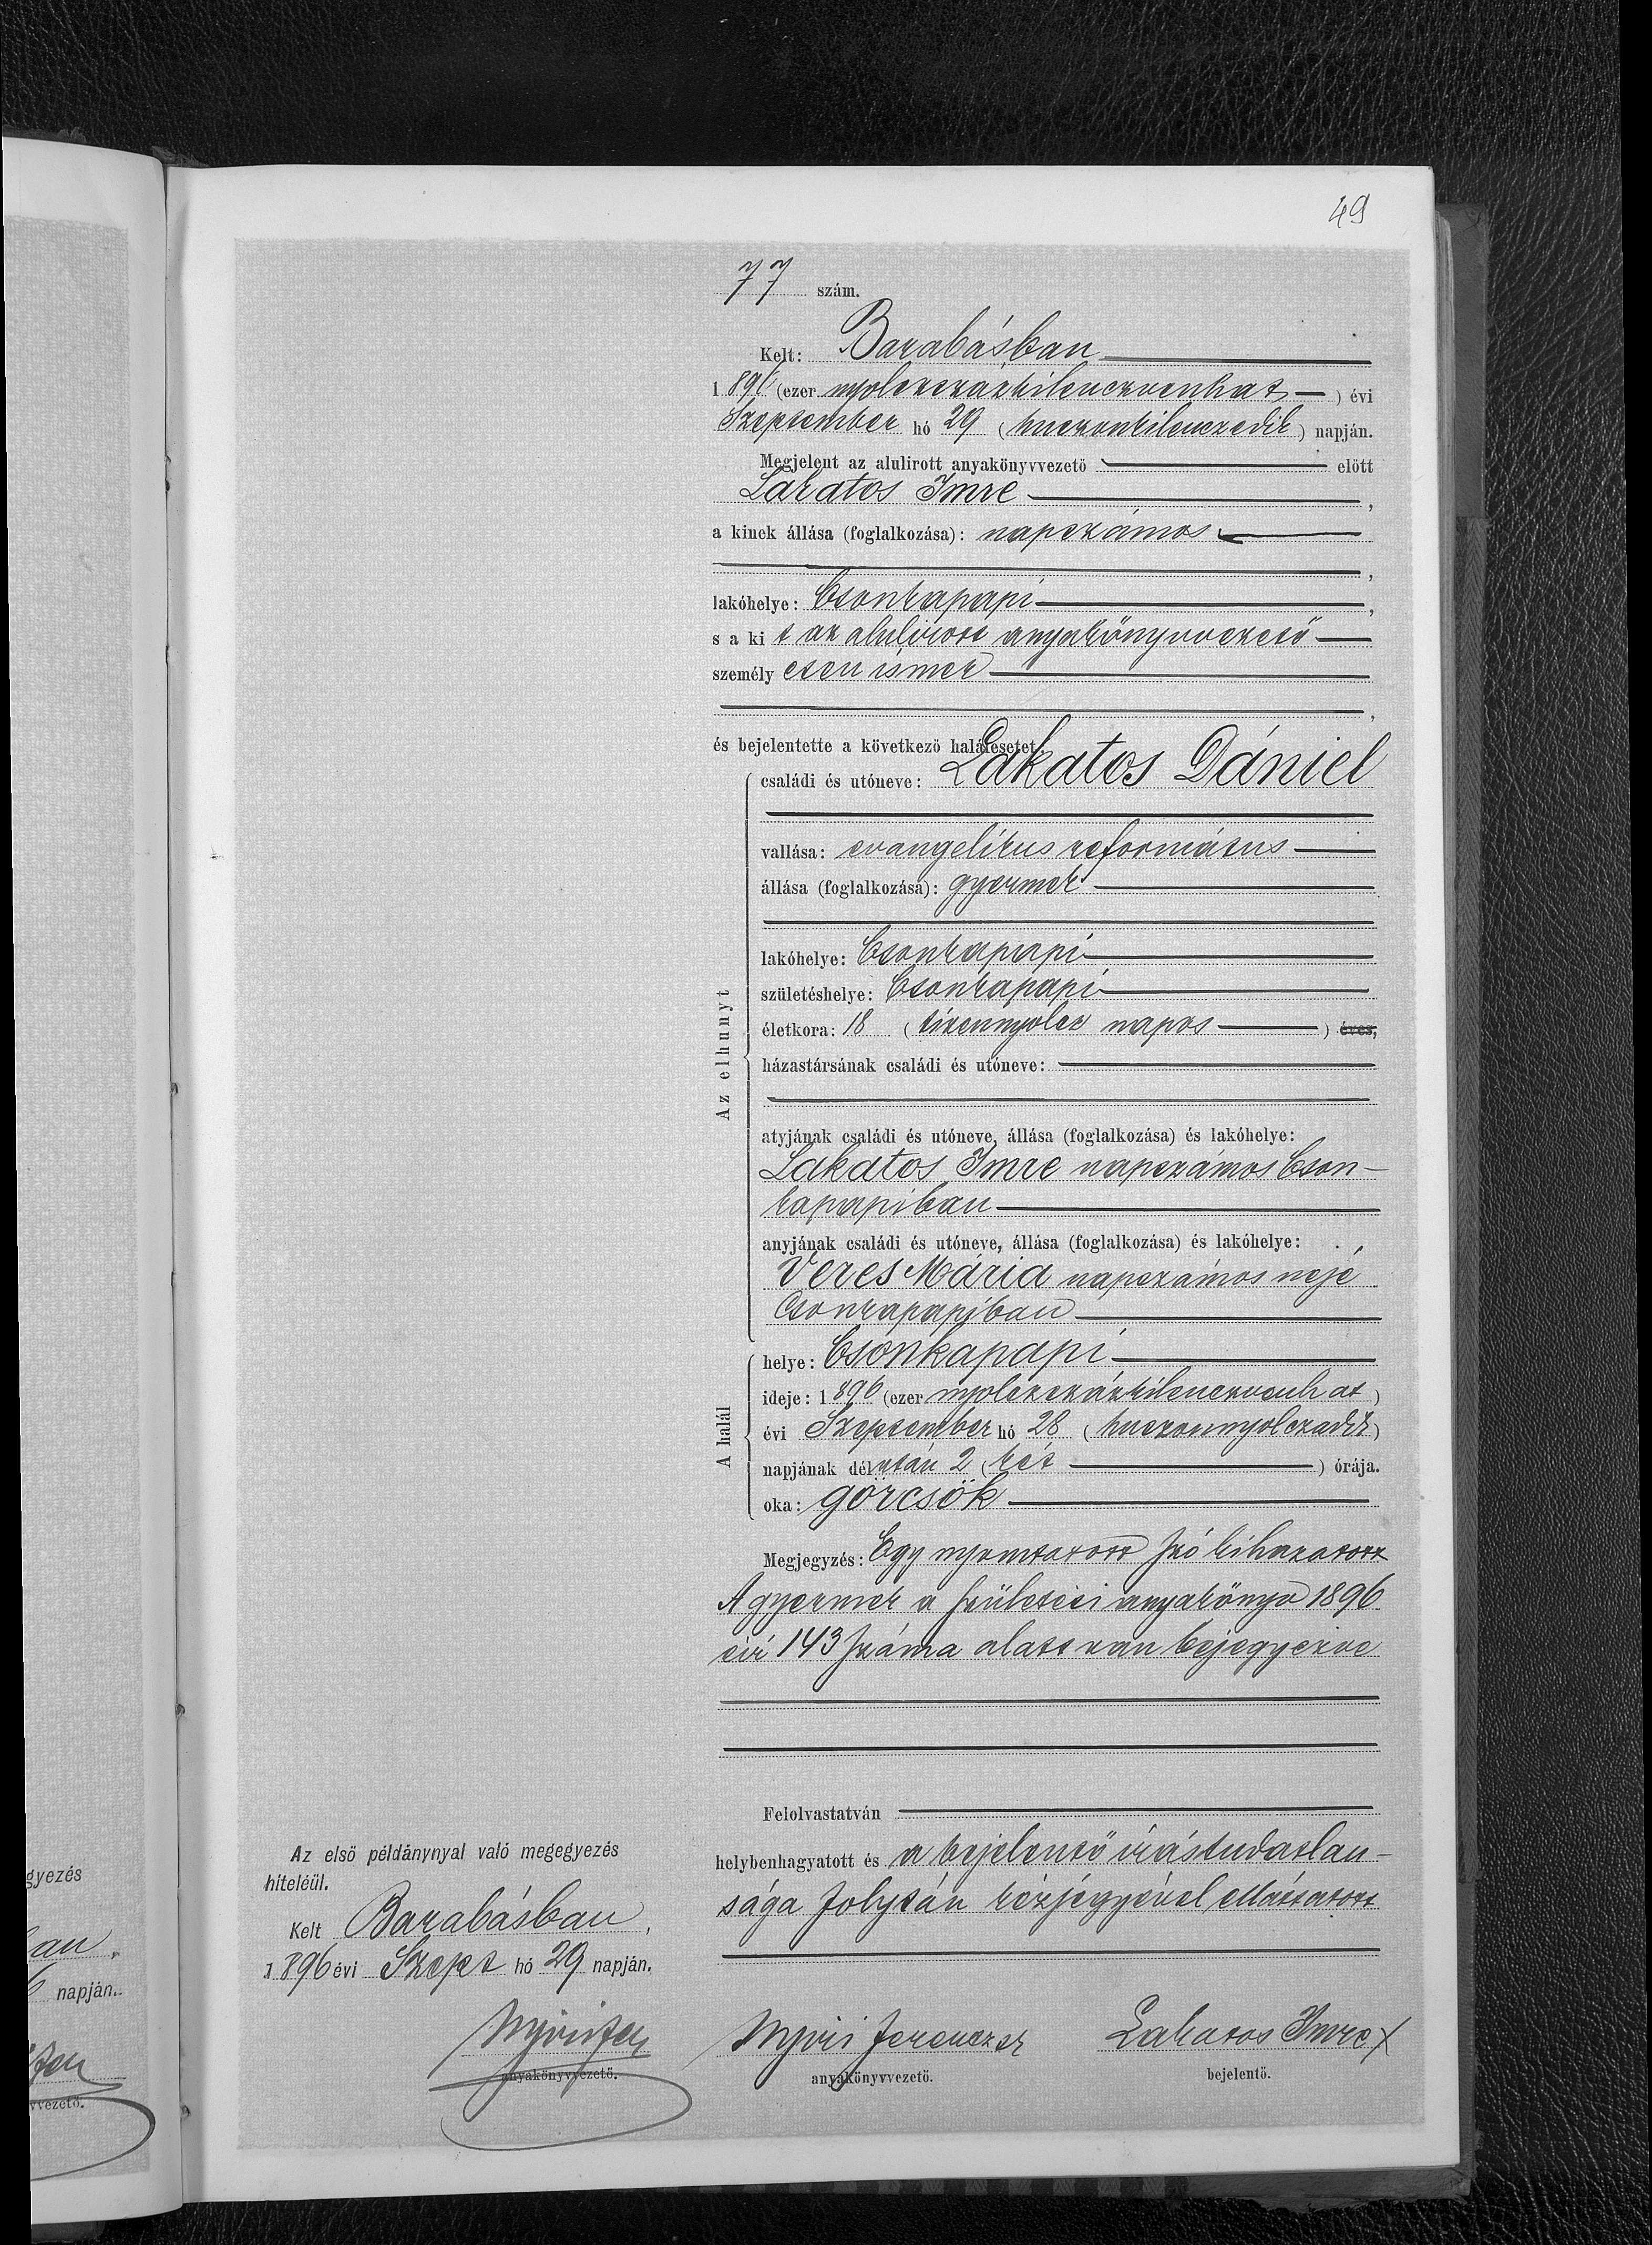 49
77 szám.
Kelt: Barabásban
1896 (ezer nyolczszázkilenczvenhat) évi
Szeptember hó 29 (huszonkilenczedik) napján.
Megjelent az alulirott anyakönyvvezető előtt
Lakatos Imre,
a kinek állása (foglalkozása): napszámos
,
lakóhelye: Csonkapapi,
s a kit az alulirott anyakönyvvezető
személyesen ismer
,
és bejelentette a következő halálesetet:
Az elhunyt
családi és utóneve: Lakatos Dániel
vallása: evangelikus református
állása (foglalkozása): gyermek
lakóhelye: Csonkapapi
születéshelye: Csonkapapi
életkora: 18 (tizennyolcz napos) éves,
házastársának családi és utóneve:
atyjának családi és utóneve, állása (foglalkozása) és lakóhelye:
Lakatos Imre napszámos Cson-
kapapiban
anyjának családi és utóneve, állása (foglalkozása) és lakóhelye:
Veres Mária napszámos neje
Csonkapapiban
A halál
helye: Csonkapapi
ideje: 1896 (ezer nyolczszázkilenczvenhat)
évi Szeptember hó 28 (huszonnyolczadik)
napjának délután 2 (két) órája.
oka: görcsök
Megjegyzés: Egy nyomtatott szó kihuzatott
A gyermek a születési anyakönyv 1896
évi 143 száma alatt van bejegyezve
Felolvastatván
helybenhagyatott és a bejelentő irástudatlan-
sága folytán kézjegyével elláttatott
Nyiri Ferencz
anyakönyvvezető.
Lakatos Imre X
bejelentő.
Az első példánynyal való megegyezés
hiteléül.
Kelt Barabásban,
1896 évi Szept hó 29 napján.
Nyiri Fer
anyakönyvvezető.
gyezés
an,
6 napján.
Fer
vvezető.